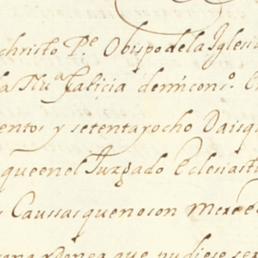 christo P.e Obispo dela Iglesi
la Nu.a Galicia demi cons.o
entos y setenta y ocho Dais q
que en el Juzgado Eclesiast
Caussas que no son Mere
que pudiese ser